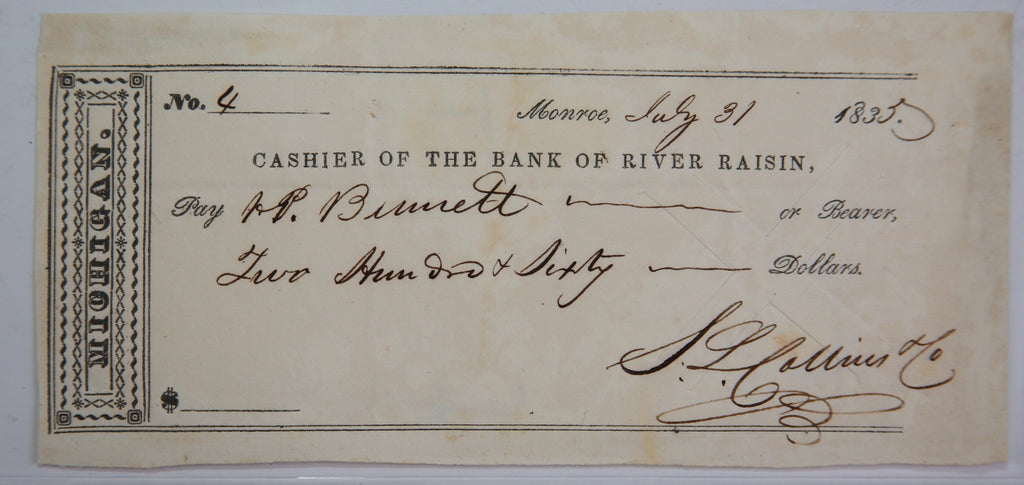 MICHIGAN.
No. 4
Monroe, July 31 1835.
CASHIER OF THE BANK OF RIVER RAISIN,
Pay P. Bennett or Bearer,
Two Hundred & Sixty Dollars.
S. L. Collins & Co
$